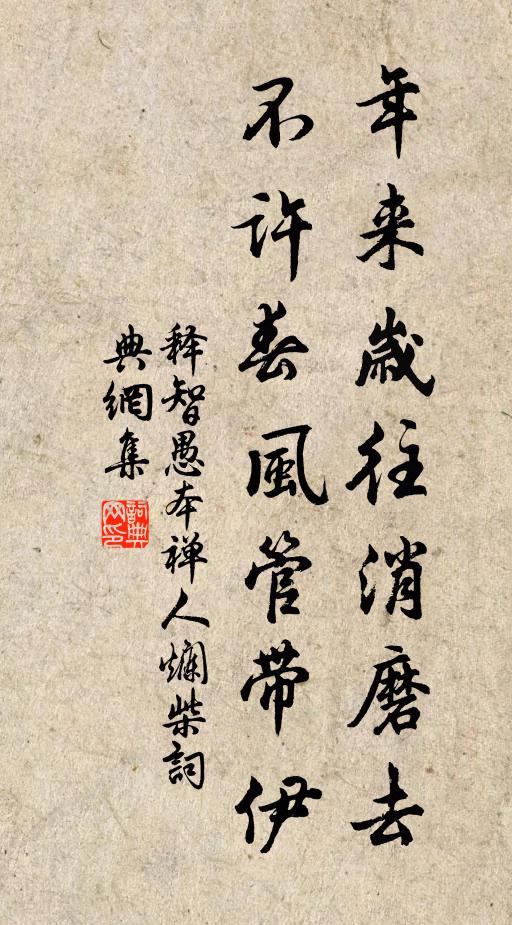 年来歳往消磨去
不许春風管帶伊
释智愚本禅人爛柴詞
典網集
詞典网印